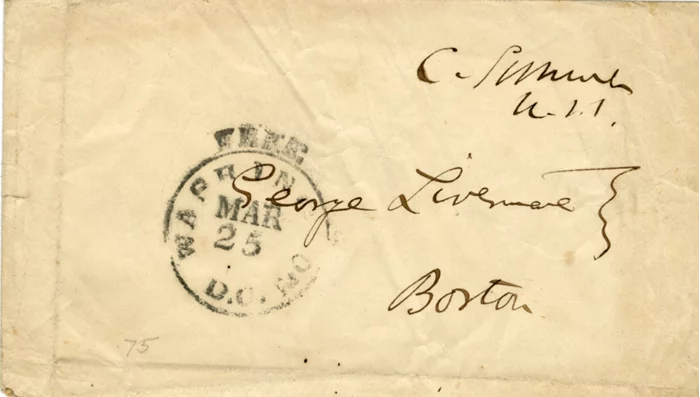 C. Sumner
U.S.S.
FREE
WASHINGTON
MAR
25
D.C.
George Livermore
Boston
75